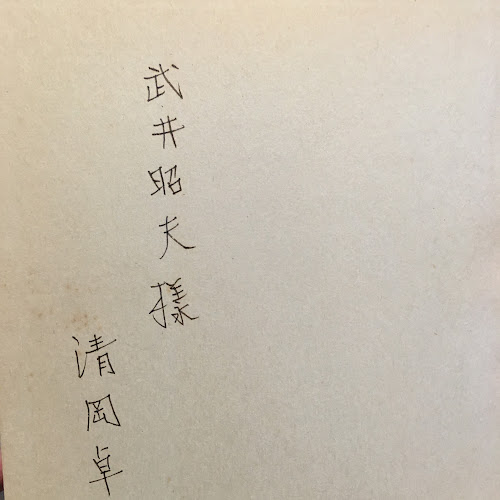 武井昭夫様
清岡卓